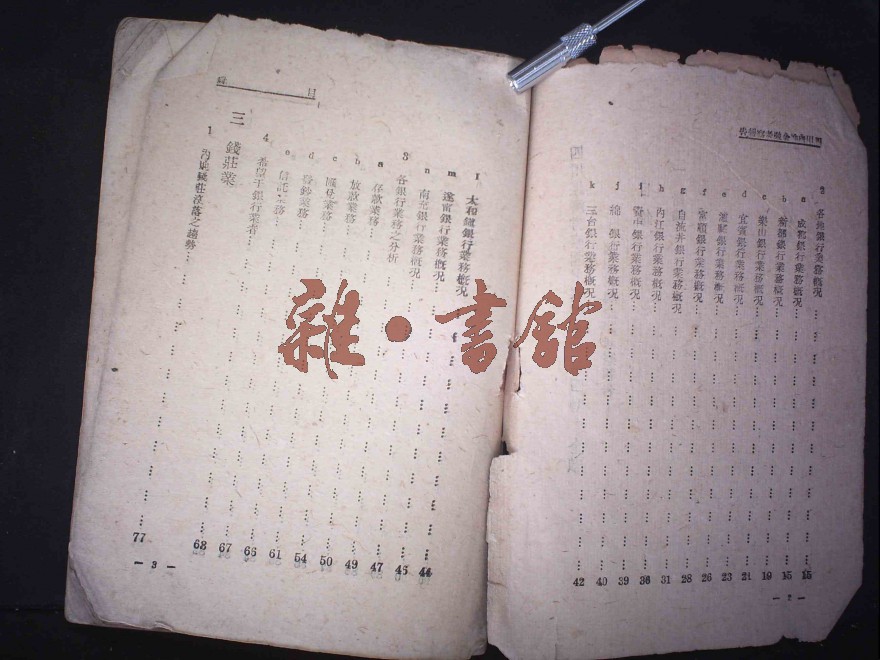 2 各地銀行業務概況 15
a 成都銀行業務概況 15
b 新都銀行業務概況 19
c 樂山銀行業務概況 21
d 宜賓銀行業務概況 23
e 銀行業務概況 26
f 富順銀行業務概況 28
g 自流井銀行業務概況 31
h 內江銀行業務概況 36
i 資中銀行業務概況 39
j 綿 銀行業務概況 40
k 三台銀行業務概況 42
— 2 —
目 錄
l 太和鎮銀行業務概況 44
m 遂甯銀行業務概況 45
n 南充銀行業務概況 47
3 各銀行業務之分析 49
a 存款業務 50
b 放款業務 54
c 匯兌業務 61
d 發鈔業務 66
e 信託業務 67
4 希望于銀行業者 68
三 錢莊業
1 內地錢莊沒落之趨勢 77
— 3 —
雜·書館